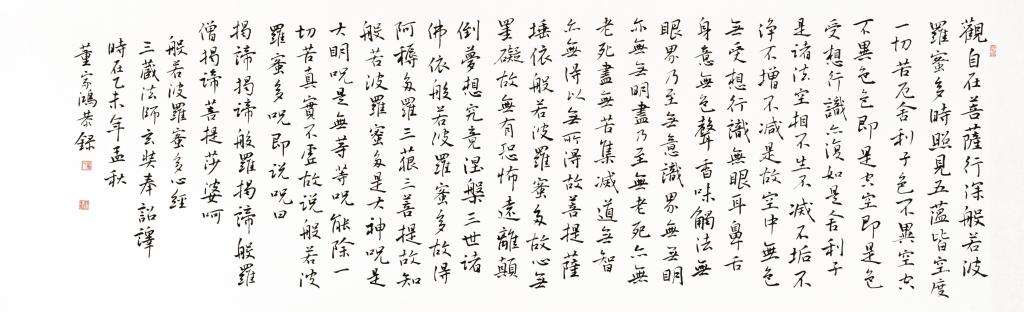 觀自在菩薩行深般若波
羅蜜多時照見五蘊皆空度
一切苦厄舍利子色不異空空
不異色色即是空空即是色
受想行識亦復如是舍利子
是諸法空相不生不滅不垢不
淨不增不減是故空中無色
無受想行識無眼耳鼻舌
身意無色聲香味觸法無
眼界乃至無意識界無無明
亦無無明盡乃至無老死亦無
老死盡無苦集滅道無智
亦無得以無所得故菩提薩
埵依般若波羅蜜多故心無
罣礙故無有恐怖遠離顛
倒夢想究竟涅槃三世諸
佛依般若波羅蜜多故得
阿耨多羅三藐三菩提故知
般若波羅蜜多是大神呪是
大明呪是無等等呪能除一
切苦真實不虛故說般若波
羅蜜多呪即說呪曰
揭諦揭諦般羅揭諦般羅
僧揭諦菩提莎婆呵
般若波羅蜜多心經
三藏法師玄奘奉詔譯
時在乙未年孟秋
董家鴻恭錄